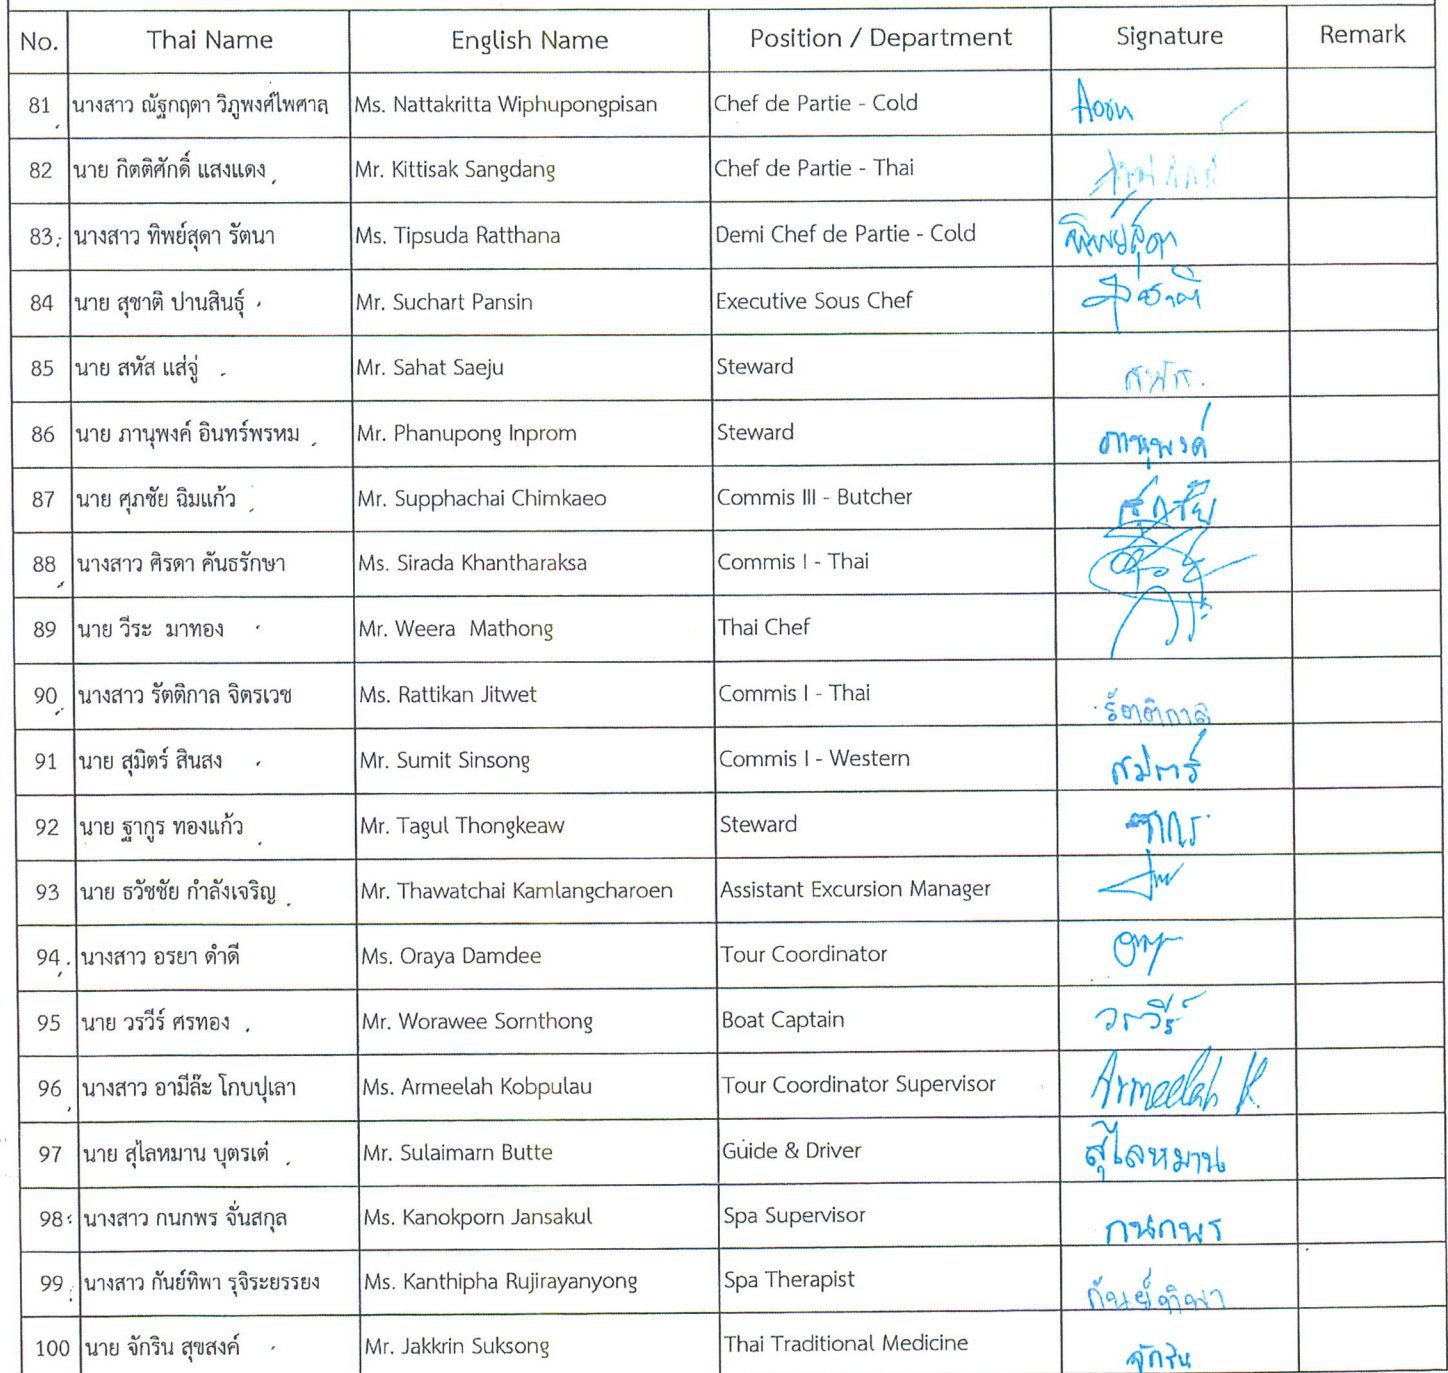 No. Thai Name English Name Position / Department Signature Remark
81 นางสาว ณัฐกฤตา วิภูพงศ์ไพศาล Ms. Nattakritta Wiphupongpisan Chef de Partie - Cold
82 นาย กิตติศักดิ์ แสงแดง Mr. Kittisak Sangdang Chef de Partie - Thai
83 นางสาว ทิพย์สุดา รัตนา Ms. Tipsuda Ratthana Demi Chef de Partie - Cold ทิพย์สุดา
84 นาย สุชาติ ปานสินธุ์ Mr. Suchart Pansin Executive Sous Chef สุชาติ
85 นาย สหัส แส่จู่ Mr. Sahat Saeju Steward สหัส.
86 นาย ภานุพงค์ อินทร์พรหม Mr. Phanupong Inprom Steward ภานุพงค์
87 นาย ศุภชัย ฉิมแก้ว Mr. Supphachai Chimkaeo Commis III - Butcher ศุภชัย
88 นางสาว ศิรดา คันธรักษา Ms. Sirada Khantharaksa Commis I - Thai
89 นาย วีระ มาทอง Mr. Weera Mathong Thai Chef
90 นางสาว รัตติกาล จิตรเวช Ms. Rattikan Jitwet Commis I - Thai รัตติกาล
91 นาย สุมิตร์ สินสง Mr. Sumit Sinsong Commis I - Western สุมิตร์
92 นาย ฐากูร ทองแก้ว Mr. Tagul Thongkeaw Steward ฐากูร
93 นาย ธวัชชัย กำลังเจริญ Mr. Thawatchai Kamlangcharoen Assistant Excursion Manager
94 นางสาว อรยา ดำดี Ms. Oraya Damdee Tour Coordinator
95 นาย วรวีร์ ศรทอง Mr. Worawee Sornthong Boat Captain วรวีร์
96 นางสาว อามีล๊ะ โกบปุเลา Ms. Armeelah Kobpulau Tour Coordinator Supervisor Armeelah K.
97 นาย สุไลหมาน บุตรเต๋ Mr. Sulaimarn Butte Guide & Driver สุไลหมาน
98 นางสาว กนกพร จั่นสกุล Ms. Kanokporn Jansakul Spa Supervisor กนกพร
99 นางสาว กันย์ทิพา รุจิระยรรยง Ms. Kanthipha Rujirayanyong Spa Therapist กันย์ทิพา
100 นาย จักริน สุขสงค์ Mr. Jakkrin Suksong Thai Traditional Medicine จักริน